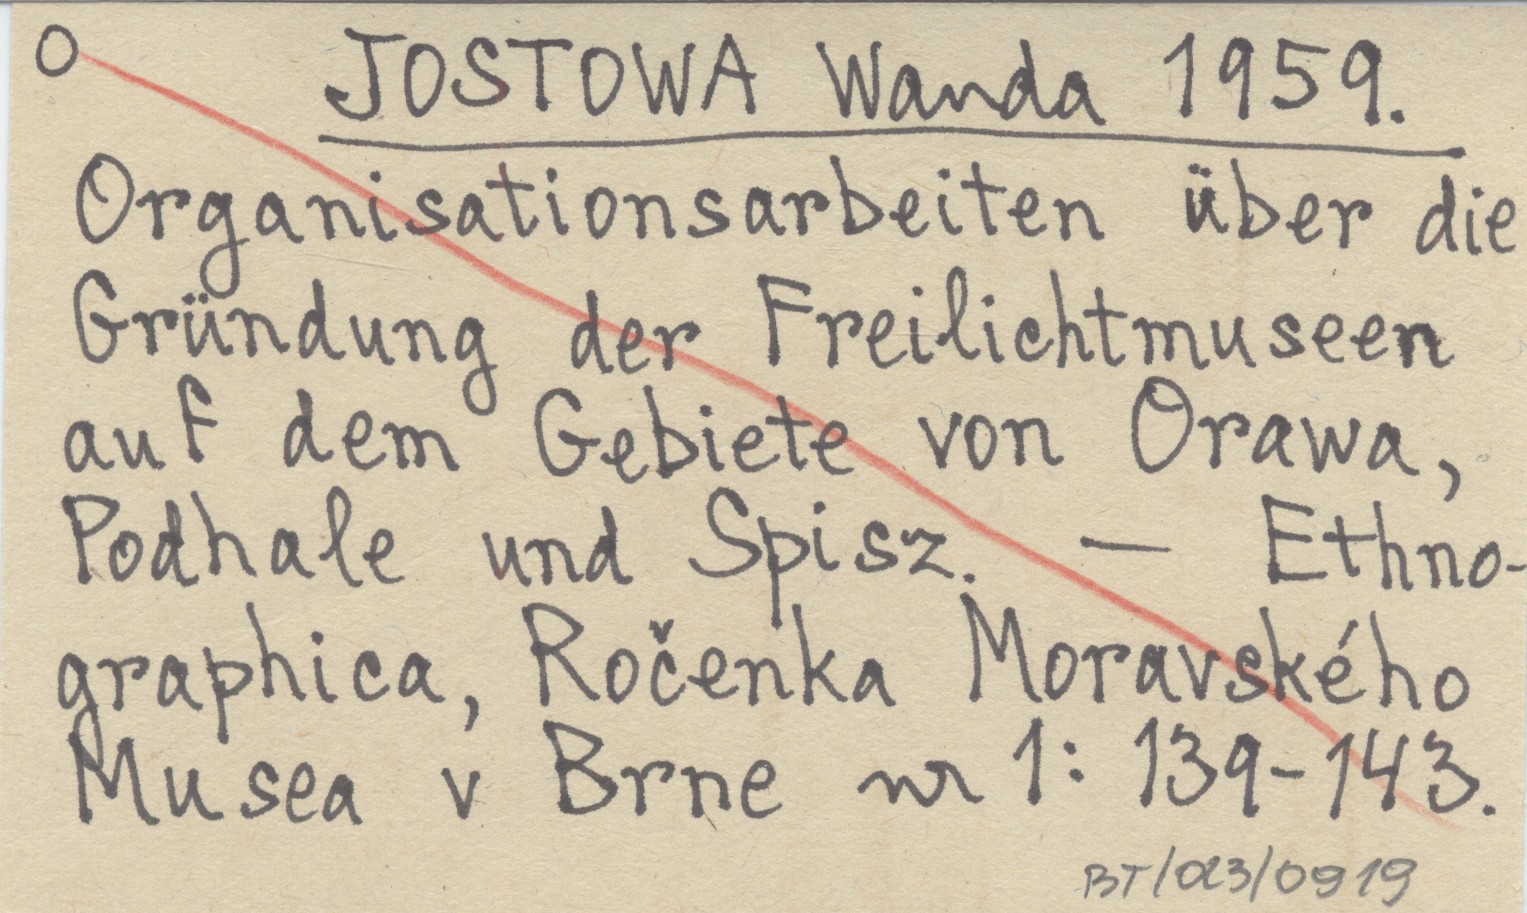 O JOSTOWA Wanda 1959.
Organisationsarbeiten über die
Gründung der Freilichtmuseen
auf dem Gebiete von Orawa,
Podhale und Spisz. — Ethno-
graphica, Ročenka Moravského
Musea v Brne nr 1: 139-143.
BT/023/0919